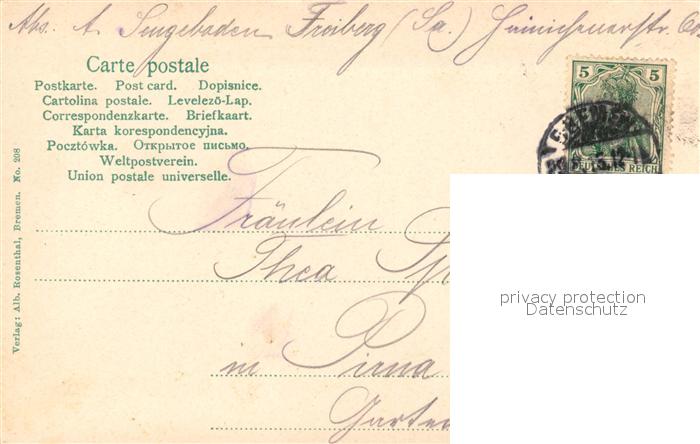 Abs. A. Sengebaden Freiberg (Sa.)
Carte postale
Postkarte. Post card. Dopisnice.
Cartolina postale. Levelező-Lap.
Correspondenzkarte. Briefkaart.
Karta korespondencyjna.
Pocztówka. Открытое письмо.
Weltpostverein.
Union postale universelle.
5 5
DEUTSCHES REICH
Verlag: Alb. Rosenthal, Bremen. No. 208
Fräulein
Thea
in Pirna
Garten
privacy protection
Datenschutz